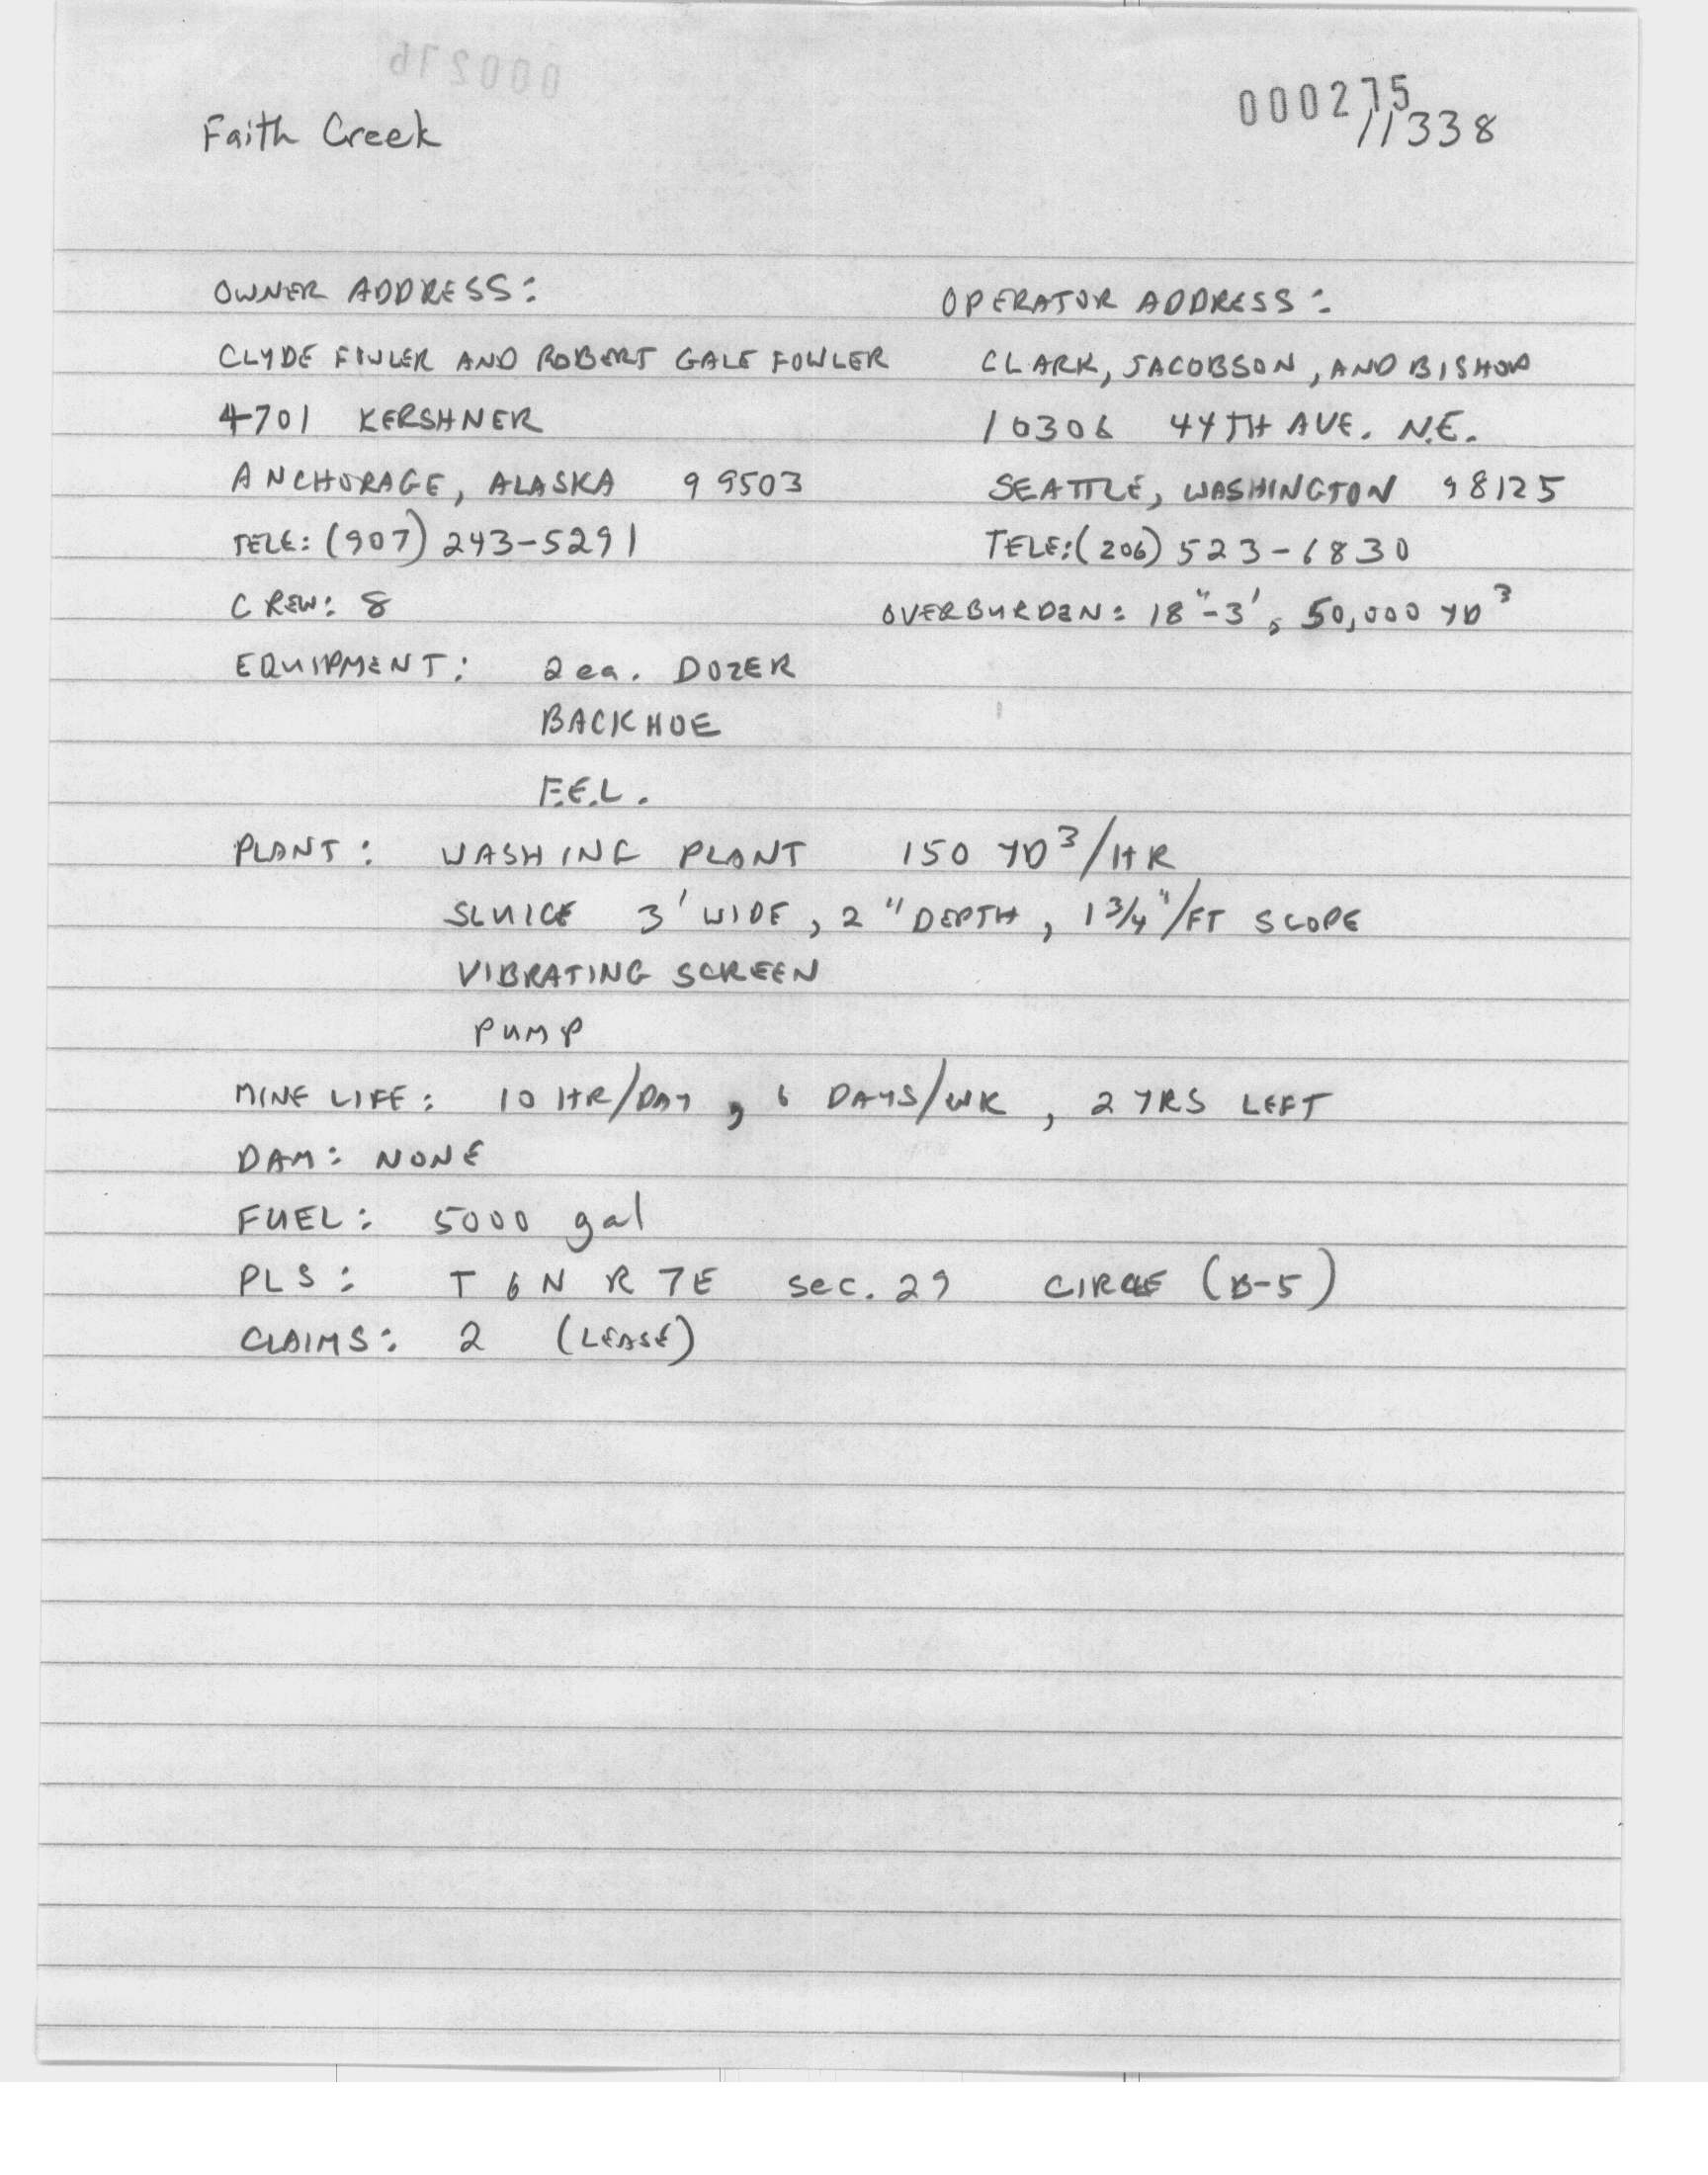 000276
000275
Faith Creek
11338
OWNER ADDRESS:
CLYDE FOWLER AND ROBERT GALE FOWLER
4701 KERSHNER
ANCHORAGE, ALASKA 99503
TELE: (907) 243-5291
OPERATOR ADDRESS:
CLARK, JACOBSON, AND BISHOP
10306 44TH AVE. N.E.
SEATTLE, WASHINGTON 98125
TELE: (206) 523-6830
CREW: 8
OVERBURDEN: 18"-3', 50,000 YD³
EQUIPMENT: 2 ea. DOZER
BACKHOE
F.E.L.
PLANT: WASHING PLANT 150 YD³/HR
SLUICE 3' WIDE, 2" DEPTH, 1 3/4"/FT SLOPE
VIBRATING SCREEN
PUMP
MINE LIFE: 10 HR/DAY, 6 DAYS/WK, 2 YRS LEFT
DAM: NONE
FUEL: 5000 gal
PLS: T 6 N R 7E sec. 29 CIRCLE (B-5)
CLAIMS: 2 (LEASE)